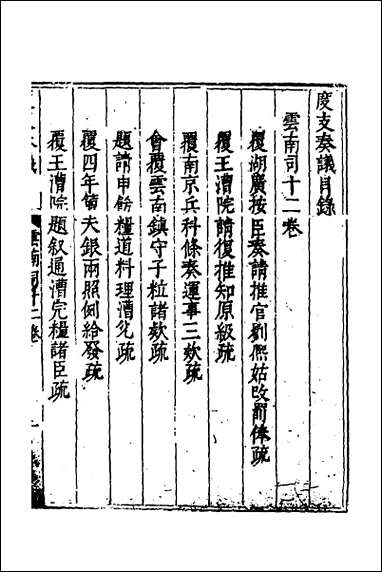 度支奏議目錄
雲南司十二卷
覆湖廣按臣奏請推官劉熈姑改罰俸疏
覆王漕院請復推知原級疏
覆南京兵科條奏運事三欵疏
會覆雲南鎮守子粒諸欵疏
題請申飭糧道料理漕兊疏
覆四年分夫銀兩照例給發疏
覆王漕院題叙通漕完糧諸臣疏
雲南司十二卷